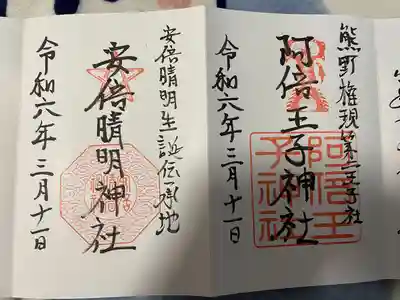 熊野権現第二王子社
阿倍王子神社
阿倍王子神社
令和六年三月十一日
安倍晴明生誕伝承地
安倍晴明神社
令和六年三月十一日